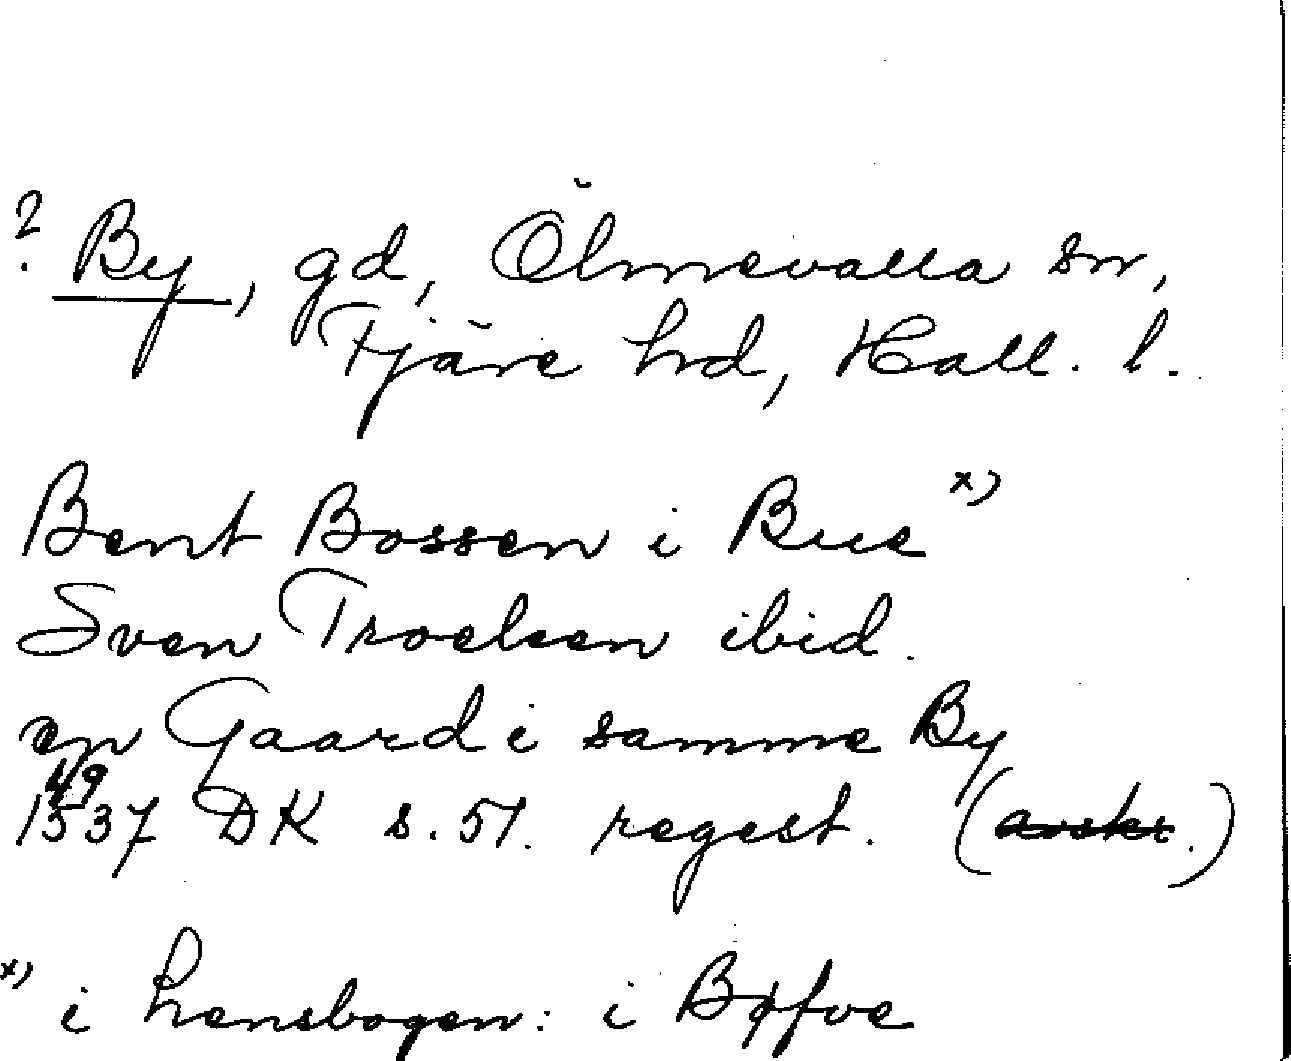 ? By, gd, Ölmevalla sn,
Fjäre hd, Hall. l.
Bent Bossen i Bue x)
Sven Troelsen ibid.
en Gaard i samme By
49
1537 DK s. 51. regest. (avskr.)
x) i Lensbogen: i Bøfve